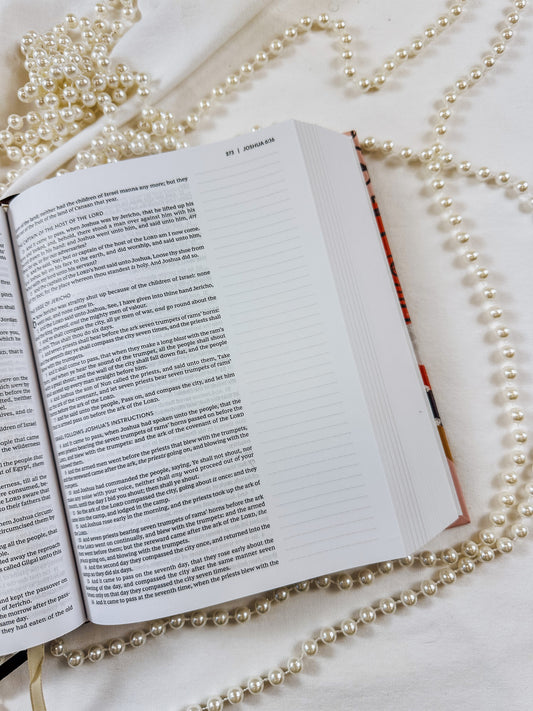 Pris
that
before
the
eyere on
were by
before
the Lord
ives, and
children
people that
the wilderness
of Egypt, them
derness, till all
ere consumed, be-
the LORD sware
them Joshua circum-
circumcised them
ing all the people,
led away the reproach
s called Gilgal unto this
and kept the passover
of Jericho.
the morrow after the pass-
same day.
they had eaten of the old
273 | JOSHUA 6:16
of the land; neither had the children of Israel manna any more; but they
fruit of the land of Canaan that year.
CAPTAIN OF THE HOST OF THE LORD
it came to pass, when Joshua was by Jericho, that he lifted up his
and, behold, there stood a man over against him with his
hand: and Joshua went unto him, and said unto him, Art
for our adversaries?
Nay; but as captain of the host of the LORD am I now come.
fell on his face to the earth, and did worship, and said unto him,
my lord unto his servant?
the captain of the LORD's host said unto Joshua, Loose thy shoe from
for the place whereon thou standest is holy. And Joshua did so.
SIEGE OF JERICHO
Now Jericho was straitly shut up because of the children of Israel: none
out, and none came in.
said unto Joshua, See, I have given into thine hand Jericho,
thereof, and the mighty men of valour.
compass the city, all ye men of war, and go round about the
Thus shalt thou do six days.
seven priests shall bear before the ark seven trumpets of rams' horns:
seventh day ye shall compass the city seven times, and the priests shall
the trumpets.
shall come to pass, that when they make a long blast with the ram's
when ye hear the sound of the trumpet, all the people shall shout
great shout; and the wall of the city shall fall down flat, and the people
up every man straight before him.
Joshua the son of Nun called the priests, and said unto them, Take
of the covenant, and let seven priests bear seven trumpets of rams'
the ark of the LORD.
said unto the people, Pass on, and compass the city, and let him
pass on before the ark of the LORD.
ISRAEL FOLLOWS JOSHUA'S INSTRUCTIONS
And it came to pass, when Joshua had spoken unto the people, that the
priests bearing the seven trumpets of rams' horns passed on before the
and blew with the trumpets: and the ark of the covenant of the LORD
them.
And the armed men went before the priests that blew with the trumpets,
the rereward came after the ark, the priests going on, and blowing with the
trumpets.
And Joshua had commanded the people, saying, Ye shall not shout, nor
any noise with your voice, neither shall any word proceed out of your
mouth, until the day I bid you shout; then shall ye shout.
So the ark of the LORD compassed the city, going about it once: and they
into the camp, and lodged in the camp.
And Joshua rose early in the morning, and the priests took up the ark of
the LORD.
And seven priests bearing seven trumpets of rams' horns before the ark of
the LORD went on continually, and blew with the trumpets: and the armed
men went before them; but the rereward came after the ark of the LORD, the
priests going on, and blowing with the trumpets.
And the second day they compassed the city once, and returned into
the camp: so they did six days.
And it came to pass on the seventh day, that they rose early about the
dawning of the day, and compassed the city after the same manner seven
times: only on that day they compassed the city seven times.
And it came to pass at the seventh time, when the priests blew with the